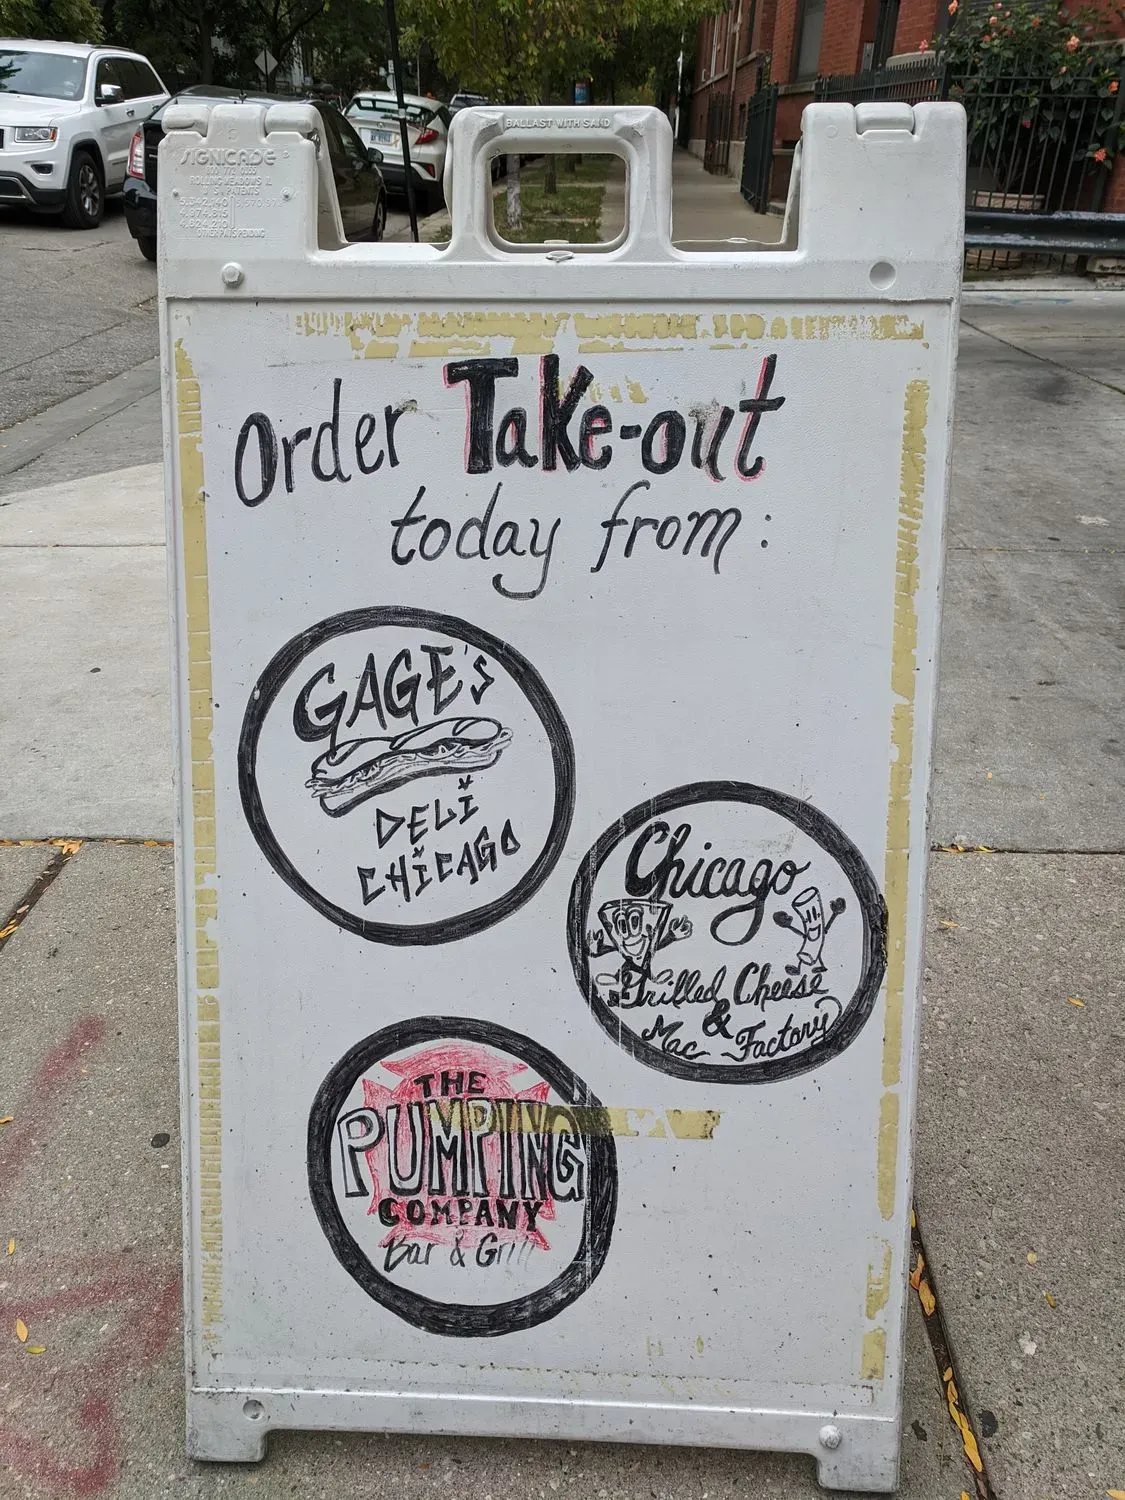 BALLAST WITH SAND
SIGNICADE
ROLLING MEADOWS IL
U S PATENTS
OTHER PATS PENDING
Order Take-out
today from:
GAGE'S
DELI
CHICAGO
Chicago
Grilled Cheese
&
Mac Factory
THE
PUMPING
COMPANY
Bar & Grill